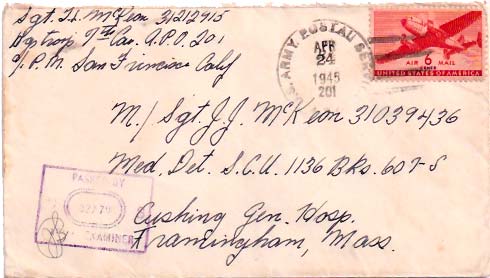 Sgt. H. McKeon 31212915
Hq Troop 7th Cav. A.P.O. 201
c/o P.M. San Francisco Calif
U.S. ARMY POSTAL SER
APR
24
1945
201
AIR 6 MAIL
CENTS
UNITED STATES OF AMERICA
M/Sgt. J.J. McKeon 31039436
Med. Det. S.C.U. 1136 Bks. 607-S
Cushing Gen. Hosp.
Framingham, Mass.
PASSED BY
EXAMINER